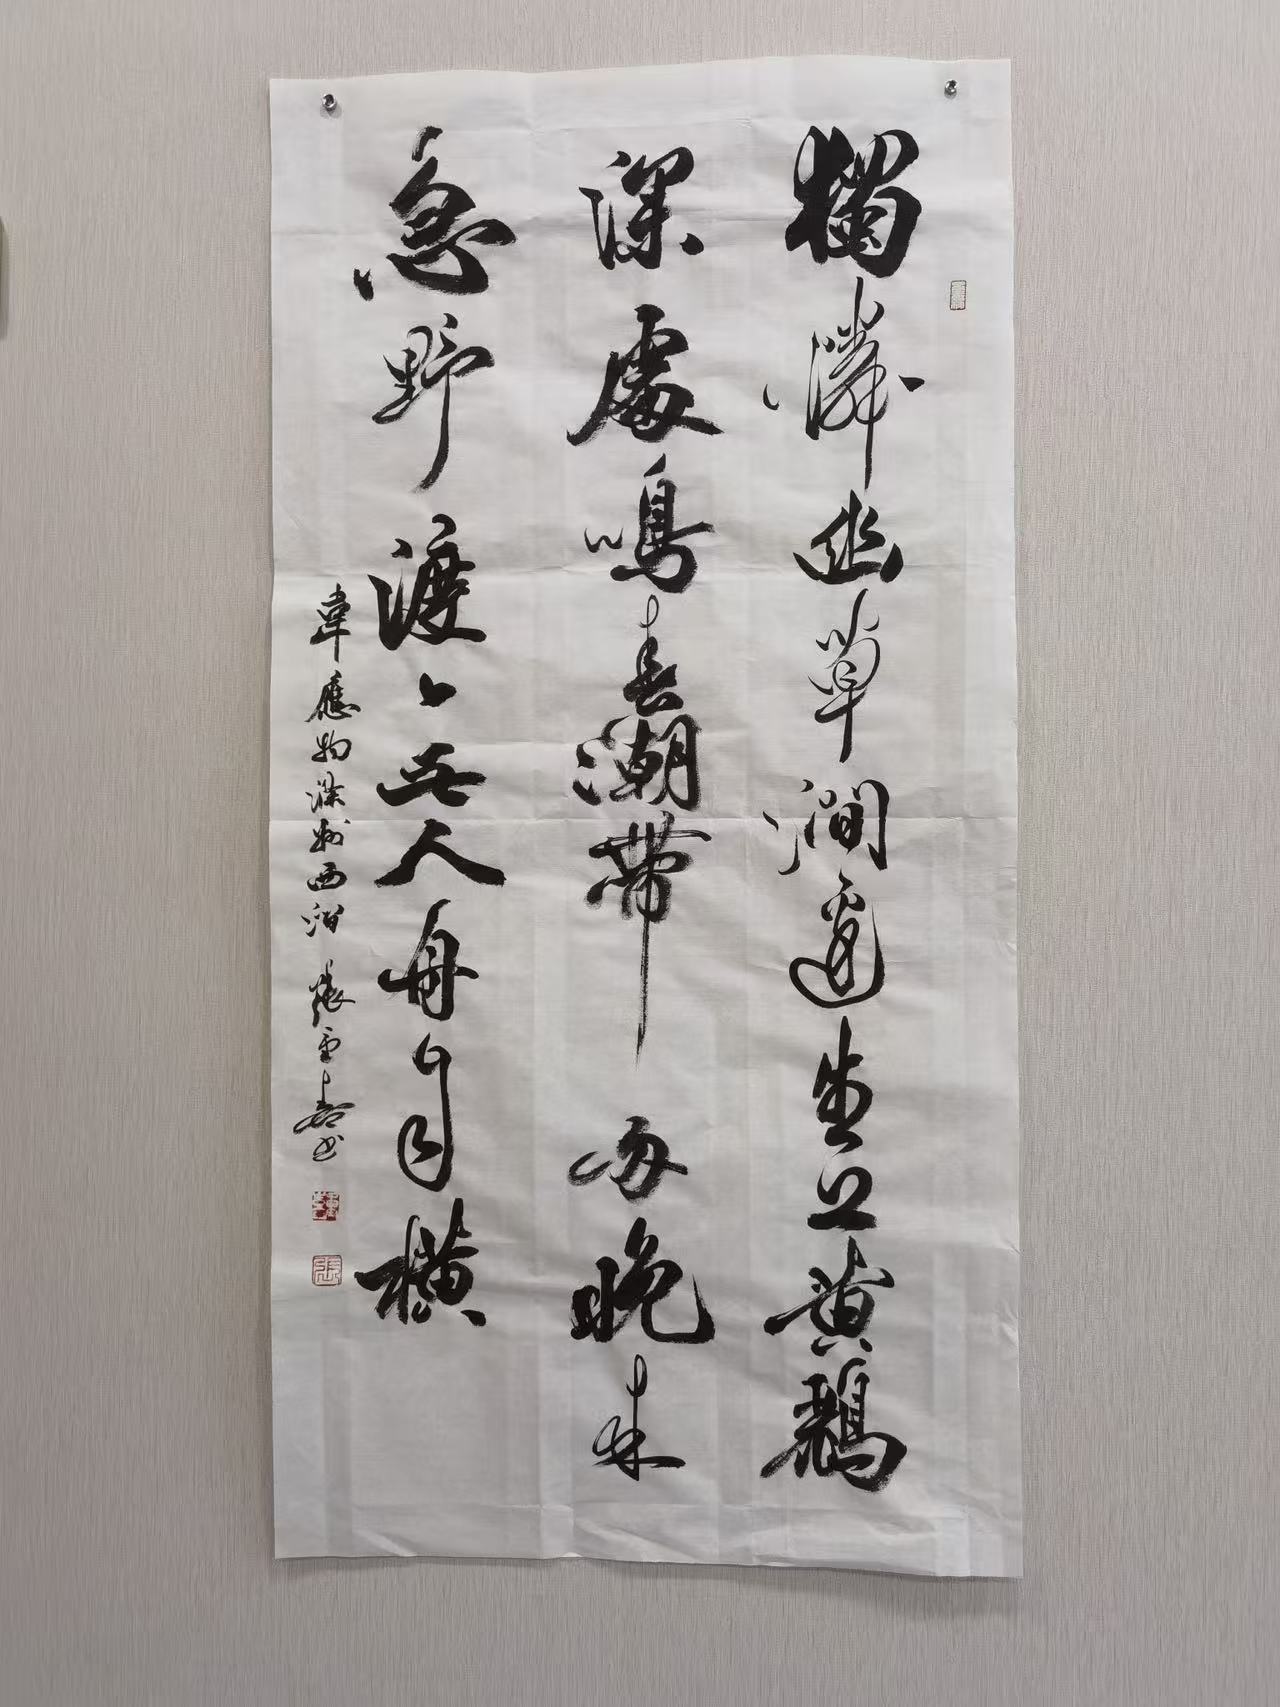 獨憐幽草澗邊生上黃鸝
深處鳴春潮帶雨晚來
急野渡無人舟自橫
韋應物滁州西澗 張書